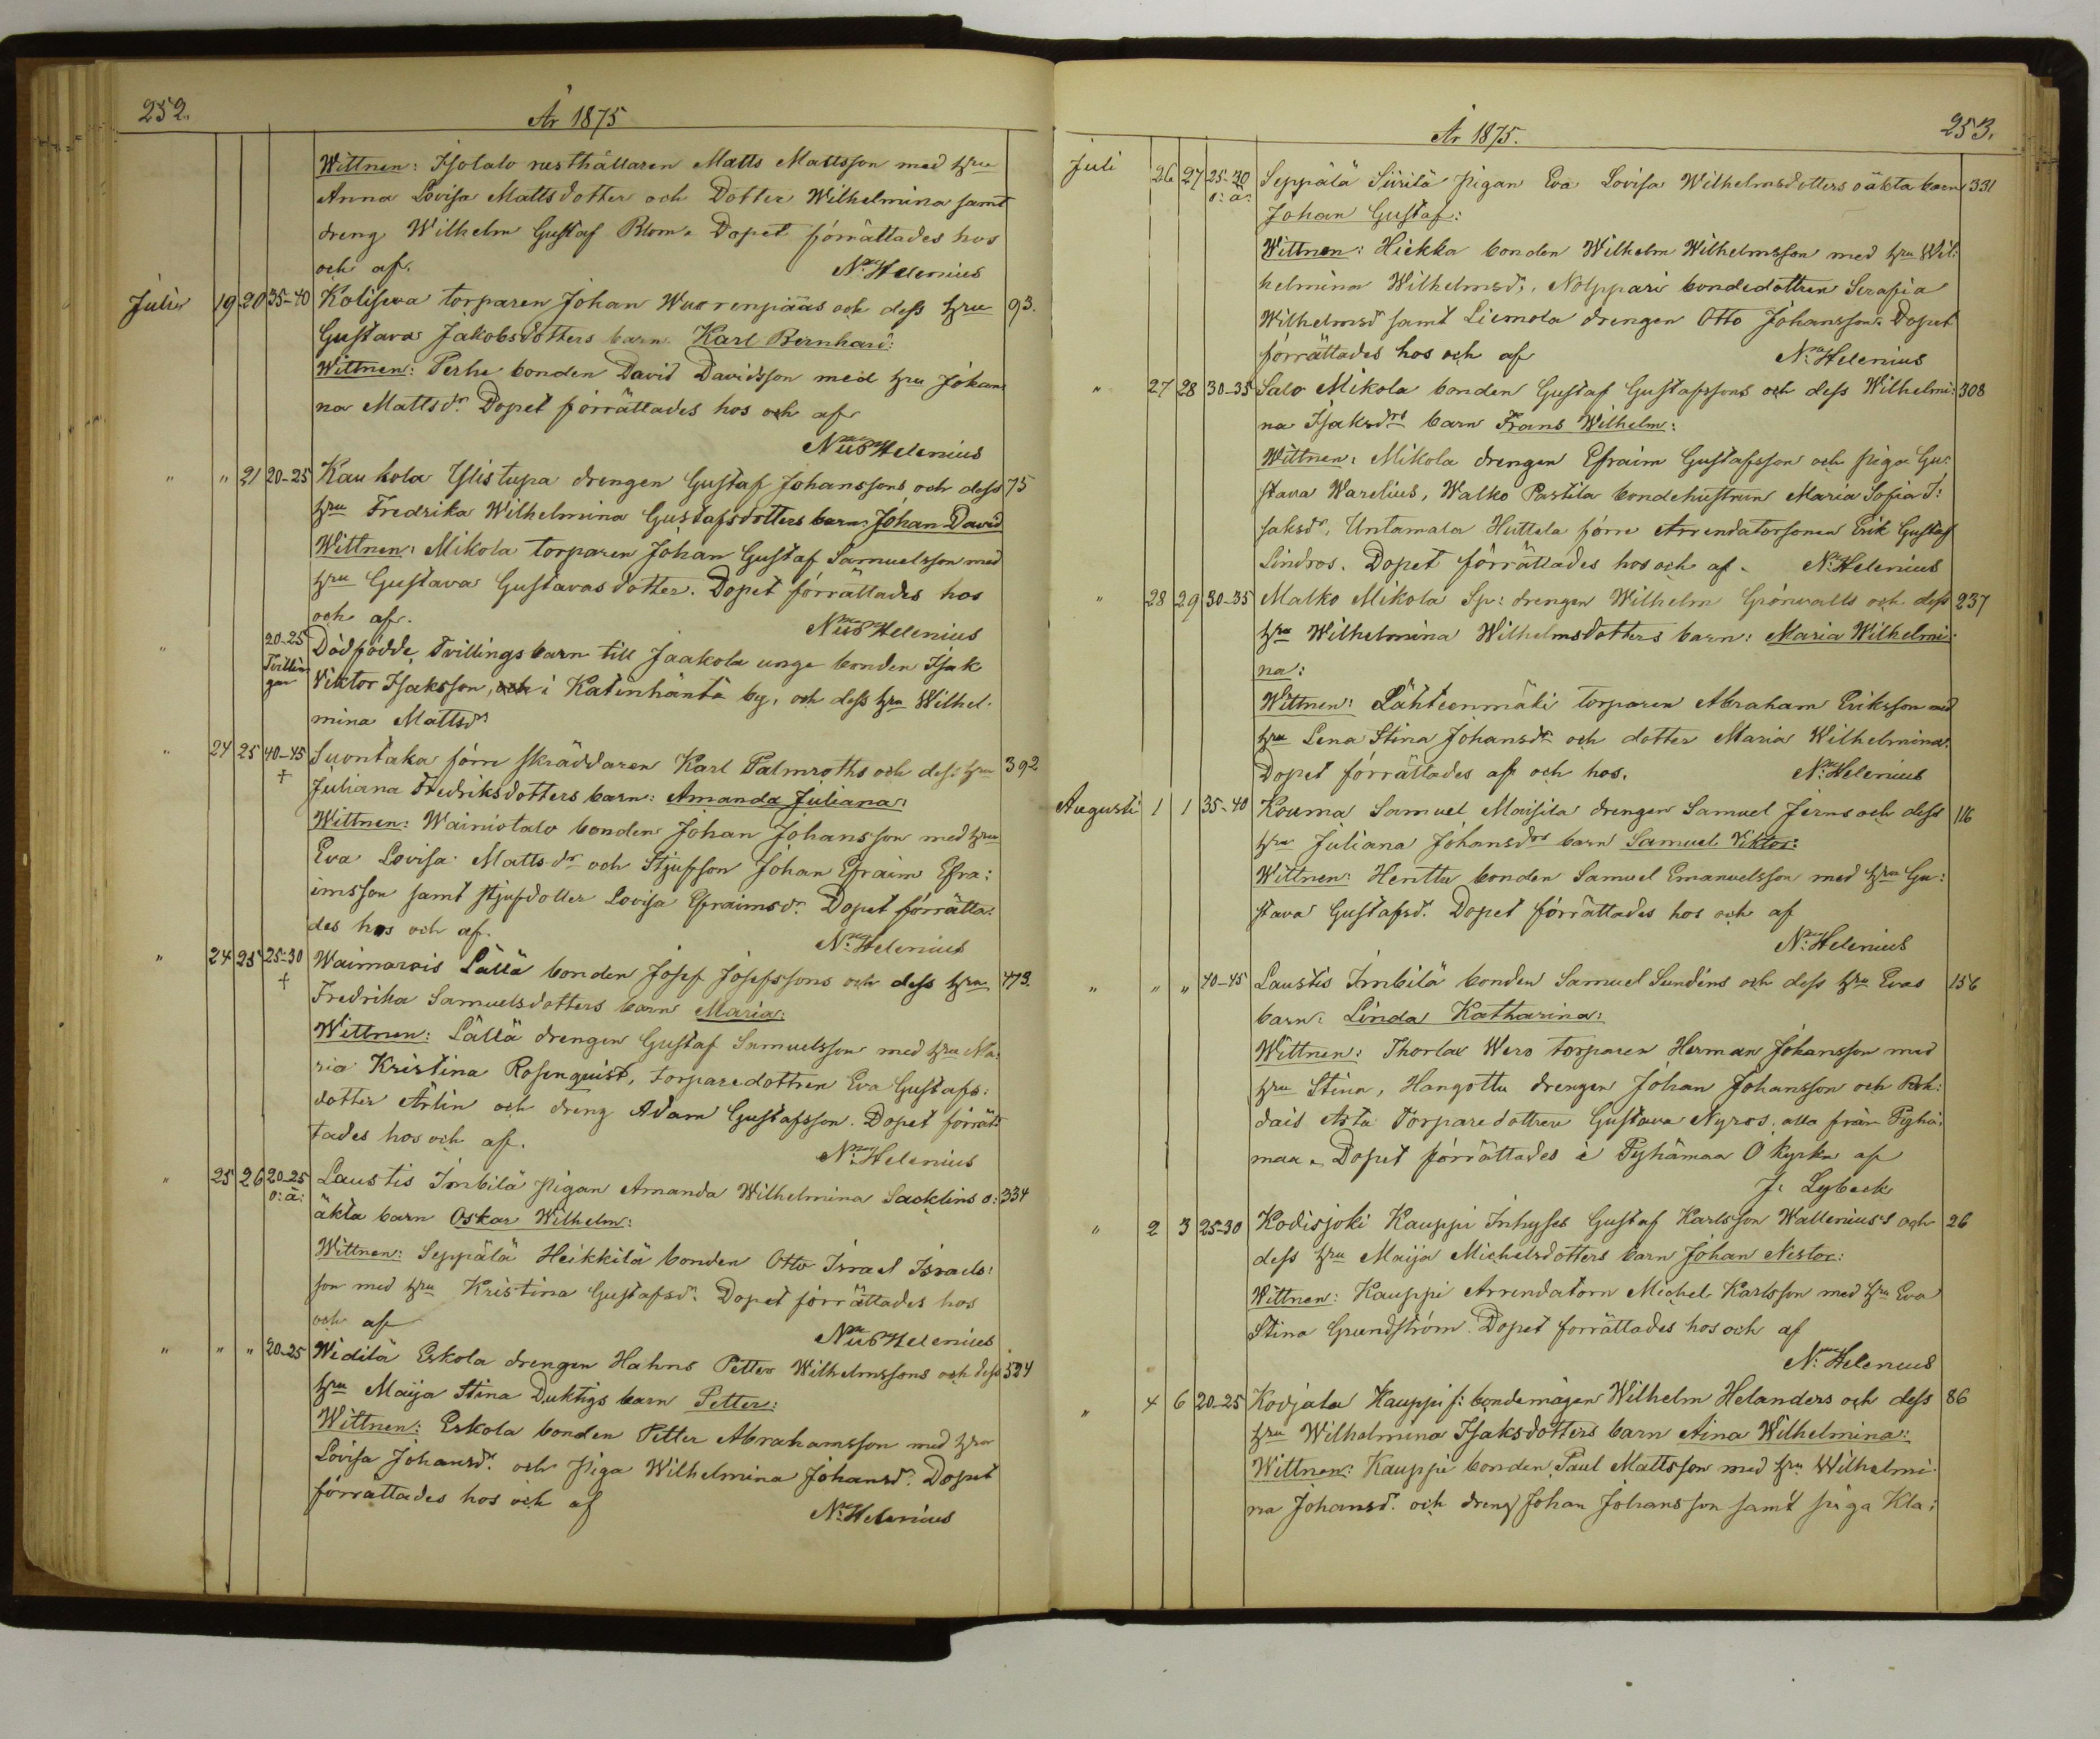 252.
År 1875
Wittnen: Isotalo rusthållaren Matts Mattsson med hru
Anna Lovisa Mattsdotter och Dotter Wilhelmina samt
dreng Wilhelm Gustaf Blom. Dopet förrättades hos
och af. N: Helenius
Juli 19 20 35-40 Kolisewa torparen Johan Wuorenpääs och dess hru 93.
Gustava Jakobsdotters barn Karl Bernhard:
Wittnen: Perhe bonden David Davidsson med hru Johan
na Mattsdr. Dopet förrättades hos och af
Nils Helenius
" " 21 20-25 Kaukola Ylistupa drengen Gustaf Johanssons och dess 75
hru Fredrika Wilhelmina Gustafsdotters barn: Johan David
Wittnen: Mikola torparen Johan Gustaf Samuelsson med
hru Gustava Gustavasdotter. Dopet förrättades hos
och af. Nils Helenius
" 20-25 Tvillin gar Dödfödde Tvillingsbarn till Jaakola unge bonden Isak
Viktor Isaksson, och i Katinhäntä by, och dess hru Wilhel-
mina Mattsdr
" 24 25 40-45 Suontaka förre skräddaren Karl Palmroths och dess hru 392
† Juliana Fredriksdotters barn: Amanda Juliana:
Wittnen: Wainiotalo bonden Johan Johansson med hru
Eva Lovisa Mattsdr och Stjufson Johan Efraim Efra:
imsson samt stjufdotter Lovisa Efraimsdr. Dopet förrätta:
des hos och af. N: Helenius
" 24 25 25-30 Waimarois Lällä bonden Josef Josefssons och dess hru 473.
† Fredrika Samuelsdotters barn Maria:
Wittnen: Lällä drengen Gustaf Samuelsson med hru Ma:
ria Kristina Rosenquist, torparedottren Eva Gustafs:
dotter Ärlin och dreng Adam Gustafsson. Dopet förrät:
tades hos och af. N: Helenius
" 25 26 20-25 Laustis Imbilä pigan Amanda Wilhelmina Sacklins o: 334
o: ä: äkta barn Oskar Wilhelm:
Wittnen: Seppälä Heikkilä bonden Otto Israel Israels:
son med hru Kristina Gustafsdr. Dopet förrättades hos
och af Nils Helenius
" " " 20-25 Widilä Eskola drengen Hahns Petter Wilhelmssons och dess 524
hru Maija Stina Duktigs barn Petter:
Wittnen: Eskola bonden Petter Abrahamsson med hru
Lovisa Johansdr. och piga Wilhelmina Johansdr. Dopet
förrattades hos och af N: Helenius
År 1875.
253.
Juli 26 27 25-30 Seppälä Siirilä pigan Eva Lovisa Wilhelmsdotters oäkta barn 331
o: ä: Johan Gustaf:
Wittnen: Hiekka bonden Wilhelm Wilhelmsson med hru Wil:
helmina Wilhelmsdr., Nolppari bondedottren Serafia
Wilhelmsdr samt Liemola drengen Otto Johansson. Dopet
förrättades hos och af N: Helenius
" 27 28 30-35 Salo Mikola bonden Gustaf Gustafssons och dess Wilhelmi: 308
na Isaksdrs barn Frans Wilhelm:
Wittnen: Mikola drengen Efraim Gustafsson och piga Gu:
stava Warelius, Walko Pastila bondehustrun Maria Sofia I:
saksdr, Untamala Huttala förre Arrendatorsonen Erik Gustaf
Lindros. Dopet förrättades hos och af. N: Helenius
" 28 29 30-35 Malko Mikola Sp: drengen Wilhelm Grönvalls och dess 237
hru Wilhelmina Wilhelmsdotters barn: Maria Wilhelmi:
na:
Wittnen: Lähteenmäki torparen Abraham Eriksson med
hru Lena Stina Johansdr och dotter Maria Wilhelmina.
Dopet förrättades af och hos. N: Helenius
Augusti 1 1 35-40 Kouma Samuel Maisila drengen Samuel Jerns och dess 116
hru Juliana Johansdrs barn Samuel Viktor:
Wittnen: Henttu bonden Samuel Emanuelsson med hru Gu:
stava Gustafsdr. Dopet förrättades hos och af
N: Helenius
" " " 40-45 Laustis Imbilä bonden Samuel Sundéns och dess hru Evas 156
barn: Linda Katharina:
Wittnen: Thorlax Wero torparen Herman Johansson med
hru Stina, Hangottu drengen Johan Johansson och Roh:
dais Asta Torparedottren Gustava Nyros, alla från Pyhä:
maa. Dopet förrättades i Pyhämaa O kyrka af
J. Lybeck
" 2 3 25-30 Kodisjoki Kauppi Inhyses Gustaf Karlsson Wallenius's och 26
dess hru Maija Michelsdotters barn Johan Nestor:
Wittnen: Kauppi Arrendatorn Michel Karlsson med hru Eva
Stina Grundström. Dopet forrättades hos och af
N: Helenius
" 4 6 20-25 Kodjala Kauppi f: bondemågen Wilhelm Helanders och dess 86
hru Wilhelmina Isaksdotters barn Aina Wilhelmina:
Wittnen: Kauppi bonden Paul Mattsson med hru Wilhelmi-
na Johansdr. och dreng Johan Johansson samt piga Kla: